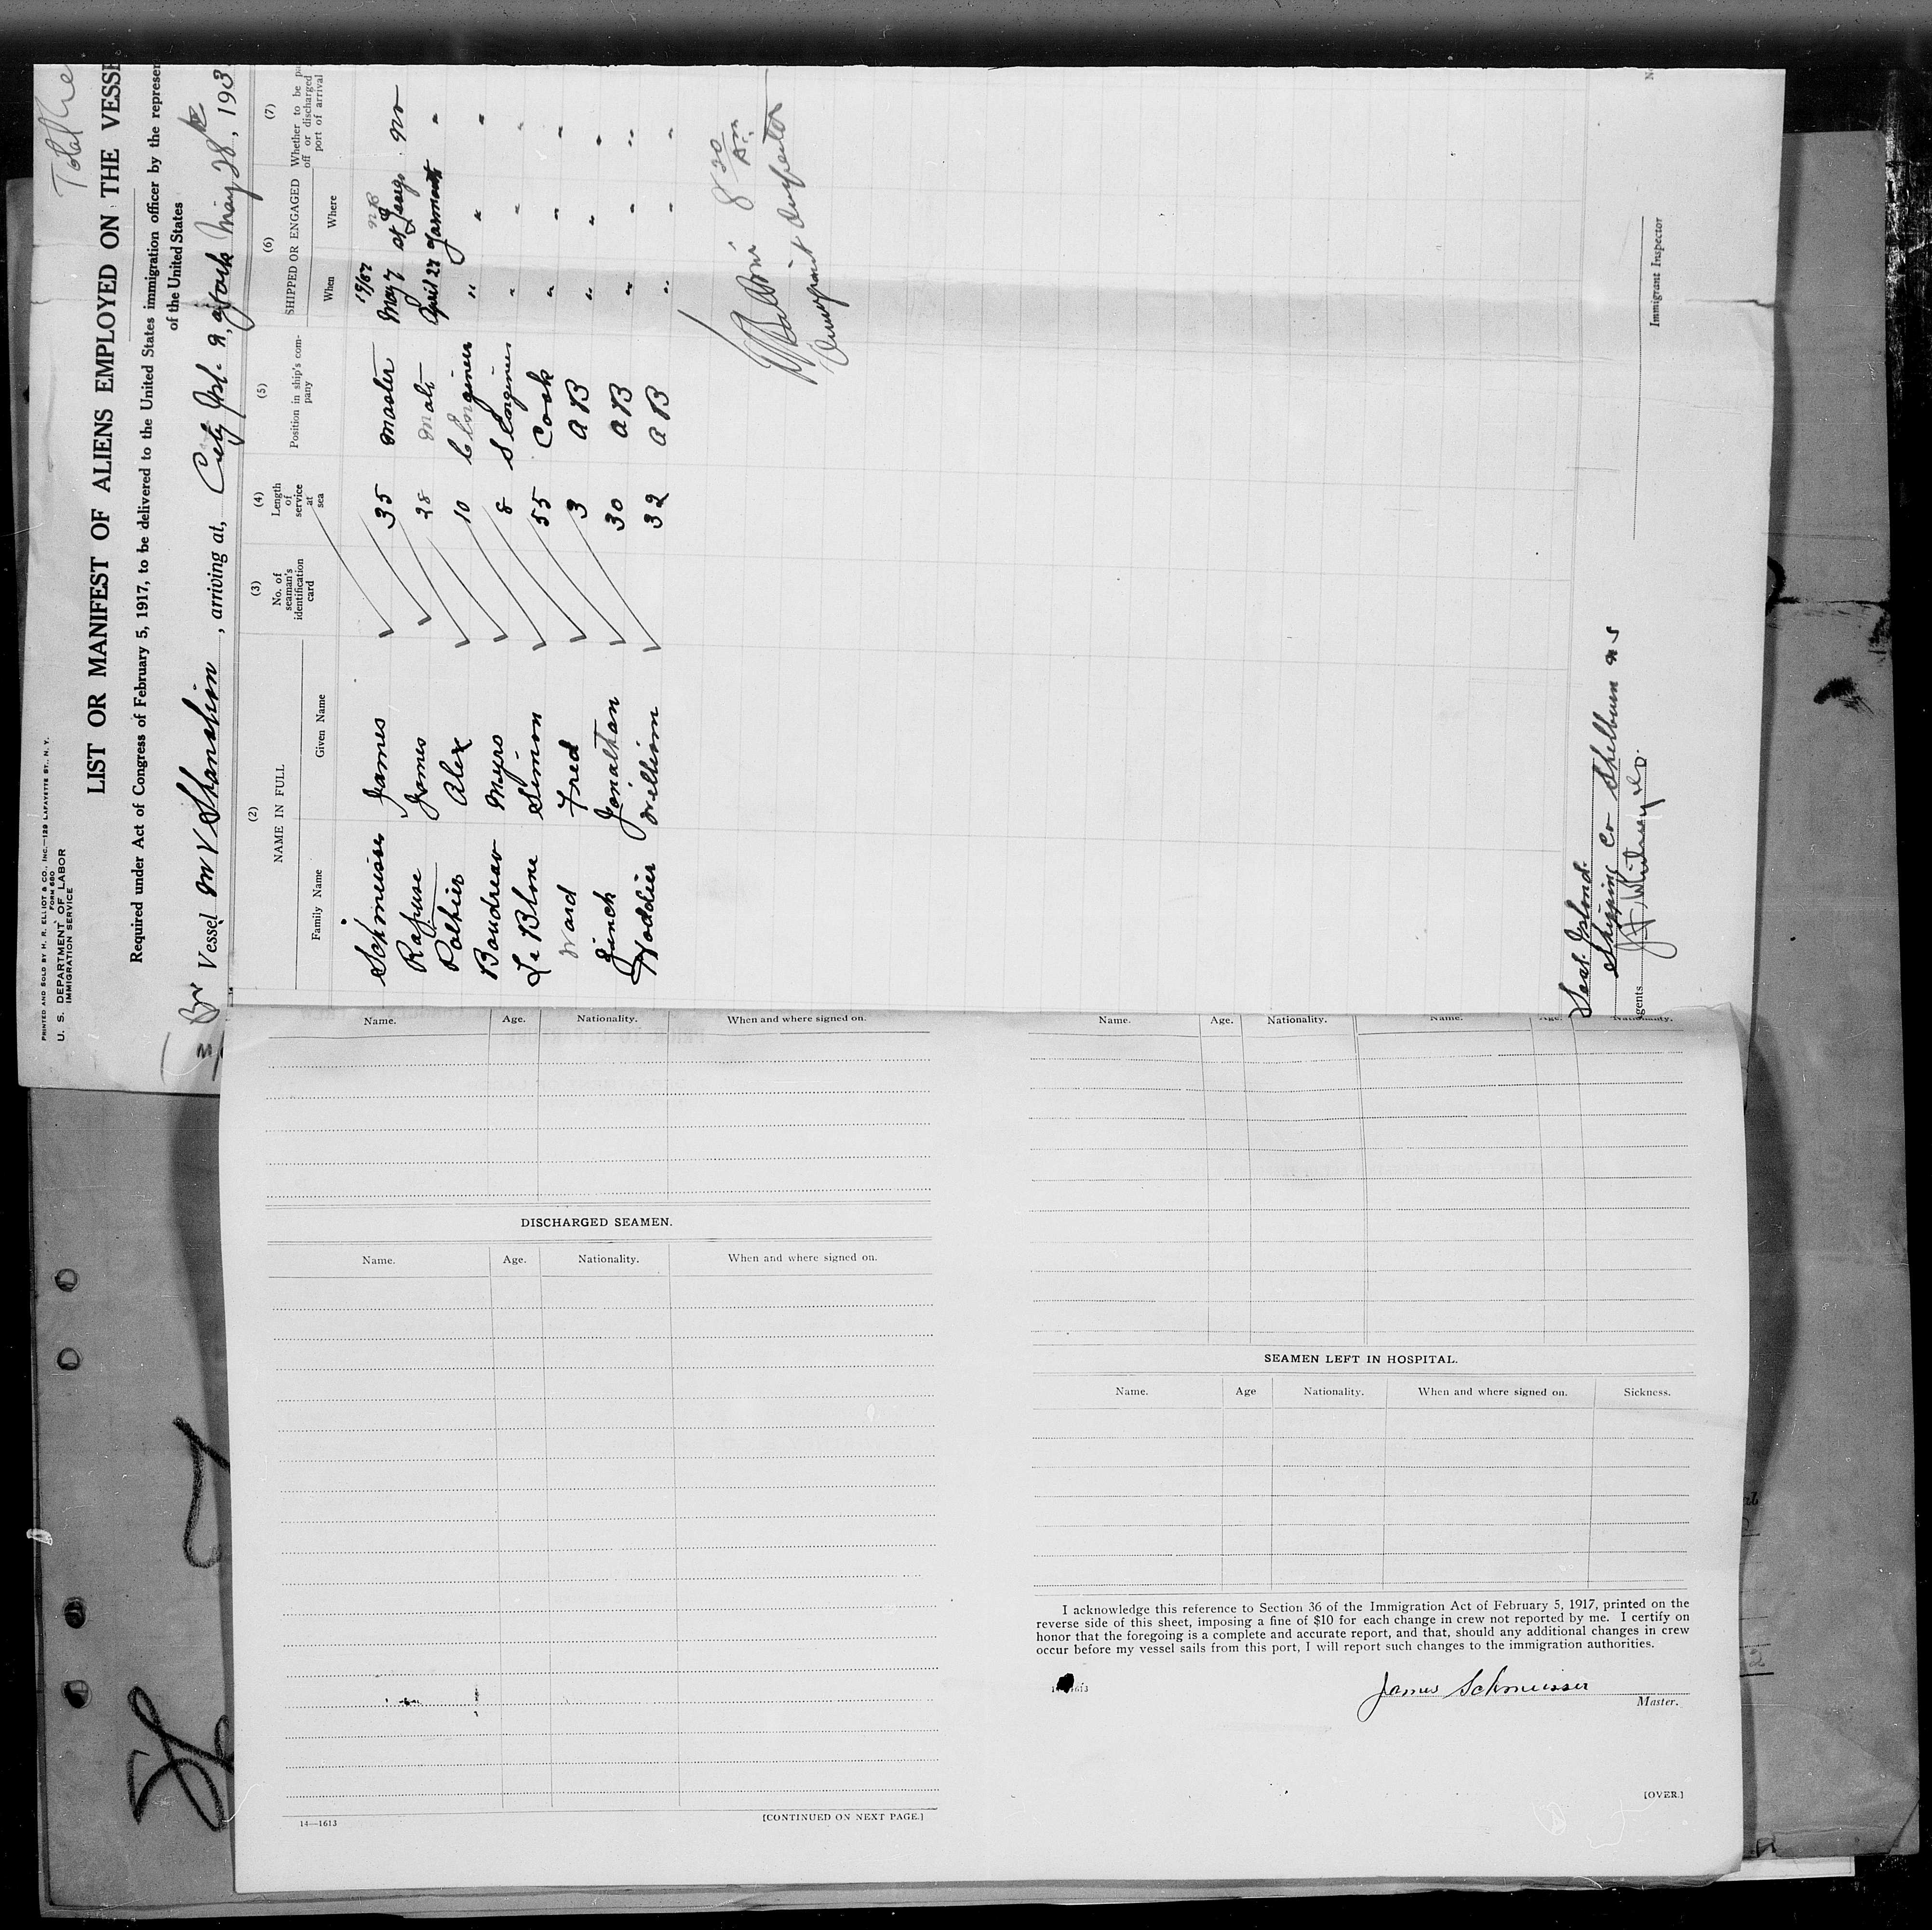 PRINTED AND SOLD BY H. R. ELLIOT & CO., INC.—129 LAFAYETTE ST., N. Y.
FORM 680
U. S. DEPARTMENT OF LABOR
IMMIGRATION SERVICE
LIST OR MANIFEST OF ALIENS EMPLOYED ON THE VESSE
Required under Act of Congress of February 5, 1917, to be delivered to the United States immigration officer by the represen
of the United States
Br Vessel M V Shanalian, arriving at, City Isl. N. York May 28th, 193
(2) (3) (4) (5) (6) (7)
NAME IN FULL No. of seaman's identification card Length of service at sea Position in ship's company SHIPPED OR ENGAGED Whether to be pa
off or discharged
port of arrival
Family Name Given Name When Where
1937 NB
Schmeisser James 35 Master May 7 St Jerigo no
Rafuse James 28 Mate April 27 Yarmouth "
Pothier Alex 10 C Engineer " " "
Boudreau Myro 8 S Engineer " " "
Le Blanc Simon 55 Cook " " "
Ward Fred 3 A B " " "
Finch Jonathan 30 A B " " "
Hoddier William 32 A B " " "
8 20 A.m
Inspector
Seal Island
Shipping Co Shelburn N S
Agents
Immigrant Inspector
Name. Age. Nationality. When and where signed on.
DISCHARGED SEAMEN.
Name. Age. Nationality. When and where signed on.
14—1613
[CONTINUED ON NEXT PAGE.]
Name. Age. Nationality. Name. Age. Nationality.
SEAMEN LEFT IN HOSPITAL.
Name. Age Nationality. When and where signed on. Sickness.
I acknowledge this reference to Section 36 of the Immigration Act of February 5, 1917, printed on the
reverse side of this sheet, imposing a fine of $10 for each change in crew not reported by me. I certify on
honor that the foregoing is a complete and accurate report, and that, should any additional changes in crew
occur before my vessel sails from this port, I will report such changes to the immigration authorities.
James Schmeisser
Master.
[OVER.]